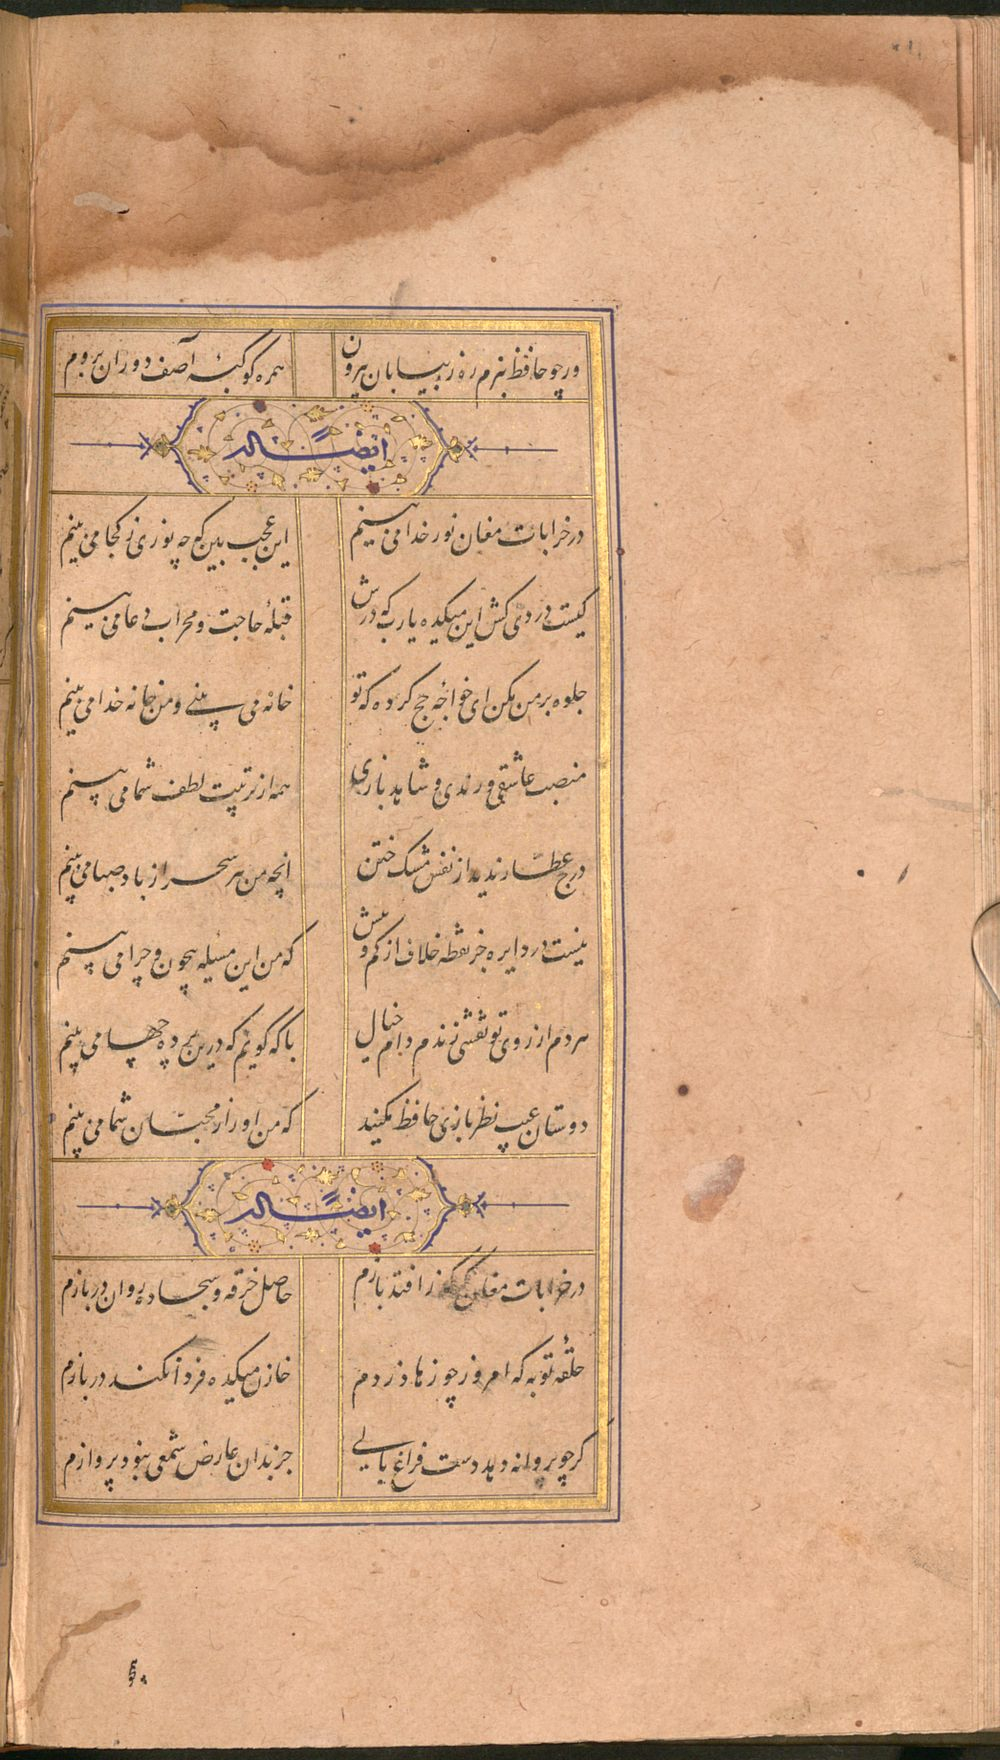 ورچو حافظ نبرم ره ز بیابان بیرون
همره کوکبهٔ آصف دوران بروم
ایضاً له
در خرابات مغان نور خدا می بینم
این عجب بین که چه نوری ز کجا می بینم
کیست دردی کش این میکده یارب که درش
قبلهٔ حاجت و محراب دعا می بینم
جلوه بر من مکن ای خواجه حج کرده که تو
خانه می بینی و من خانه خدا می بینم
منصب عاشقی و رندی و شاهد بازی
همه از تربیت لطف شما می بینم
ندید از نفس مشک ختن
انچه من هر سحر از باد صبا می بینم
نیست در دایره جز نقطه خلاف از کم و بیش
که من این مسیله بیچون و چرا می بینم
هر دم از روی تو نقشی زندم دام خیال
با که گویم که درین پرده چها می بینم
دوستان عیب نظر بازی حافظ مکنید
که من او را ز محبان شما می بینم
ایضاً له
در خرابات مغان گر گذر افتد بازم
حاصل خرقه و سجاده روان دربازم
حلقه توبه که امروز چو زهاد زدم
خازن میکده فردا نکند در بازم
کر چو پروانه دهد دست فراغ بالی
جز بدان عارض شمعی نبود پروازم